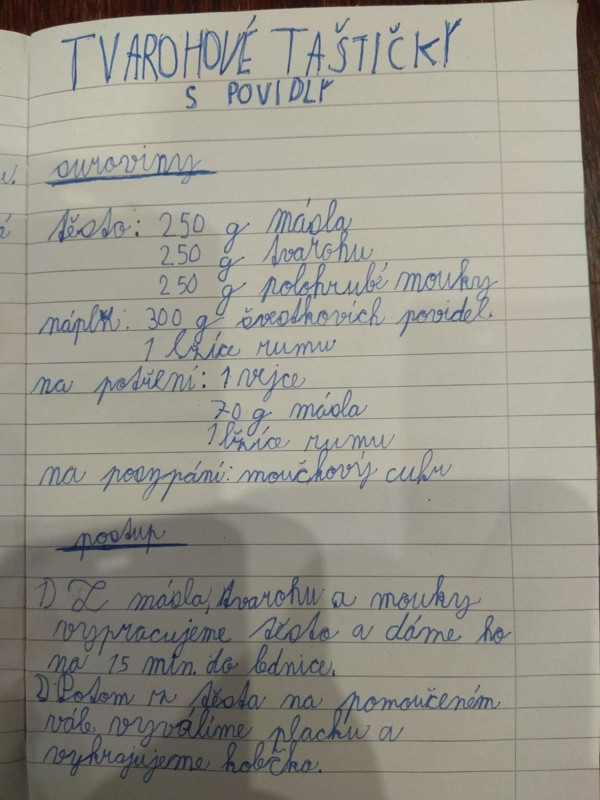 TVAROHOVÉ TAŠTIČKY
S POVIDLY
suroviny
těsto: 250 g másla
250 g tvarohu
250 g polohrubé mouky
náplň: 300 g švestkovích povidel.
1 lžíce rumu
na potření: 1 vejce
70 g másla
1 lžíce rumu
na posypání: moučkový cukr
postup
1) Z másla, tvarohu a mouky
vypracujeme těsto a dáme ho
na 15 min. do lednice.
2) Potom z těsta na pomoučeném
vále vyválíme placku a
vykrajujeme kolečka.